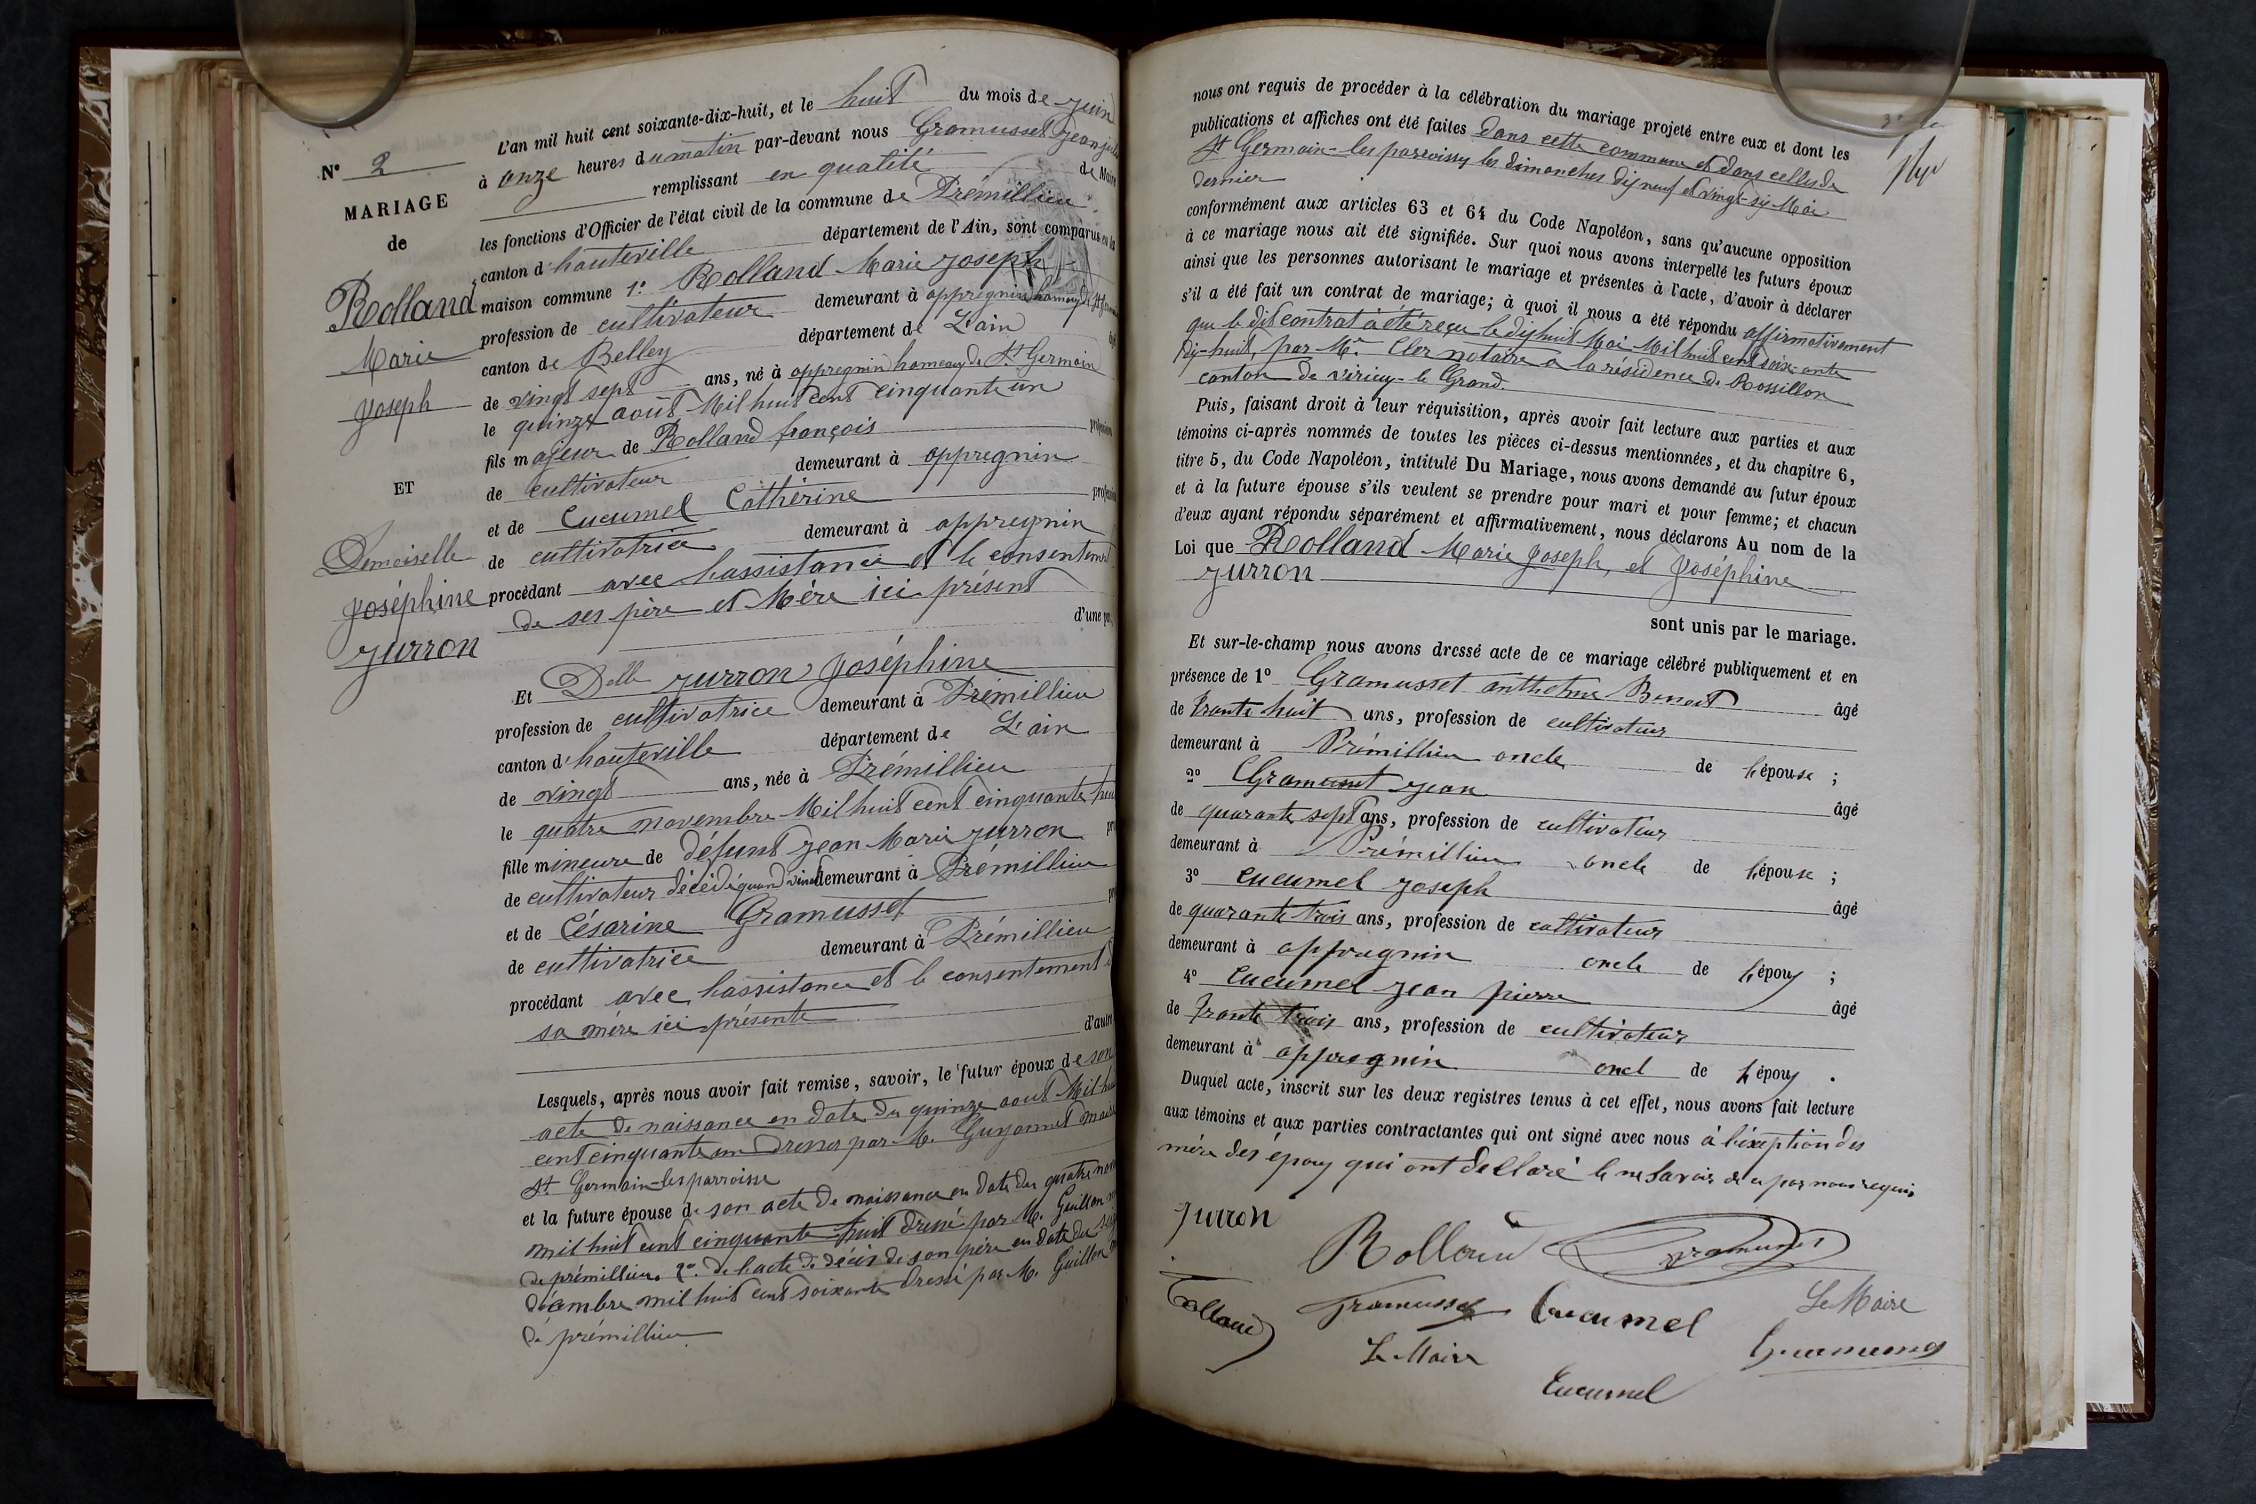 L'an mil huit cent soixante-dix-huit, et le huit du mois de juin
à onze heures du matin par-devant nous Gramusset Jean
remplissant en qualité de Maire
les fonctions d'Officier de l'état civil de la commune de Prémillieu
canton d'hauteville département de l'Ain, sont comparus en la
maison commune 1° Rolland Marie Joseph
profession de cultivateur demeurant à appregnin hameau de St
canton de Belley département de L'ain
de vingt sept ans, né à appregnin hameau de St Germain
le quinze août Mil huit cent cinquante un
fils majeur de Rolland françois
de cultivateur demeurant à appregnin
et de Cucumel Cathérine
de cultivatrice demeurant à appregnin
procédant avec l'assistance et le consentement
de ses père et Mère ici présent
d'une part
N° 2
MARIAGE
de
Rolland
Marie
Joseph
ET
Demoiselle
Joséphine
Jurron
Et Delle Jurron Joséphine
profession de cultivatrice demeurant à Prémillieu
canton d'hauteville département de L'ain
de vingt ans, née à Prémillieu
le quatre novembre Mil huit cent cinquante huit
fille mineure de défunt Jean Marie Jurron
de cultivateur décédé quand vivait demeurant à Prémillieu
et de Césarine Gramusset
de cultivatrice demeurant à Prémillieu
procédant avec l'assistance et le consentement de
sa mère ici présente
d'autre
Lesquels, après nous avoir fait remise, savoir, le futur époux de son
acte de naissance en date du quinze aout Mil huit
cent cinquante un Dressé par M. Guyonnet maire
St Germain-les-parroisse
et la future épouse de son acte de naissance en date du quatre nov
mil huit cent cinquante huit dressé par M. Guillon
de prémillieu. 2° de l'acte de décès de son père en date du
décembre mil huit cent soixante dressé par M. Guillon
de prémillieu
nous ont requis de procéder à la célébration du mariage projeté entre eux et dont les
publications et affiches ont été faites dans cette commune et dans celles de
St Germain-les paroissy les dimanches dix neuf et vingt-six Mai
dernier
conformément aux articles 63 et 64 du Code Napoléon, sans qu'aucune opposition
à ce mariage nous ait été signifiée. Sur quoi nous avons interpellé les futurs époux
ainsi que les personnes autorisant le mariage et présentes à l'acte, d'avoir à déclarer
s'il a été fait un contrat de mariage; à quoi il nous a été répondu affirmativement
que le dit contrat à été reçu le dix huit Mai Mil huit cent soixante
dix-huit, par Me Cler notaire a la résidence de Rossillon
canton de virieu-le Grand.
Puis, faisant droit à leur réquisition, après avoir fait lecture aux parties et aux
témoins ci-après nommés de toutes les pièces ci-dessus mentionnées, et du chapitre 6,
titre 5, du Code Napoléon, intitulé Du Mariage, nous avons demandé au futur époux
et à la future épouse s'ils veulent se prendre pour mari et pour femme; et chacun
d'eux ayant répondu séparément et affirmativement, nous déclarons Au nom de la
Loi que Rolland Marie Joseph, et Joséphine
Jurron
sont unis par le mariage.
Et sur-le-champ nous avons dressé acte de ce mariage célébré publiquement et en
présence de 1° Gramusset anthelme Benoit âgé
de trante huit ans, profession de cultivateur
demeurant à Prémillieu oncle de l'épouse ;
2° Gramusset Jean âgé
de quarante sept ans, profession de cultivateur
demeurant à Prémillieu oncle de l'épouse ;
3° Cucumel Joseph âgé
de quarante trois ans, profession de cultivateur
demeurant à appregnin oncle de l'époux ;
4° Cucumel Jean pierre âgé
de trante trois ans, profession de cultivateur
demeurant à appregnin oncl de l'époux .
Duquel acte, inscrit sur les deux registres tenus à cet effet, nous avons fait lecture
aux témoins et aux parties contractantes qui ont signé avec nous à l'éxeption des
mére des époux qui ont décllaré le ne savoir de ce par nous requis
Jurron
Rolland Gramusset
Rolland Gramusset Cucumel Le Maire
Le Maire Gramusset
Cucumel